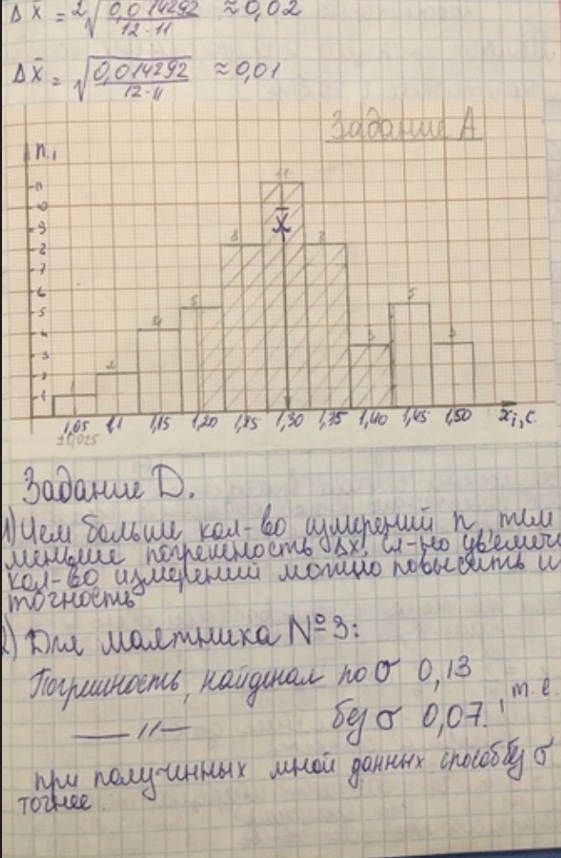 Δx̄ = 2√(0,014292 / 12·11) ≈ 0,02
Δx̄ = √(0,014292 / 12·11) ≈ 0,01
Задание А
n, 1
11
10
9
8
7
6
5
4
3
2
1
1 2 4 5 8 11 8 3 5 3
x̄
1,05 1,1 1,15 1,20 1,25 1,30 1,35 1,40 1,45 1,50 xᵢ, c.
±0,025
Задание D.
1) Чем больше кол-во измерений n, тем
меньше погрешность Δx,
кол-во измерений можно повысить и
точность
2) Для маятника №3:
Погрешность, найденая по σ 0,13
—〃— без σ 0,07. , т.е.
при полученных мной данных способ без σ
точнее.